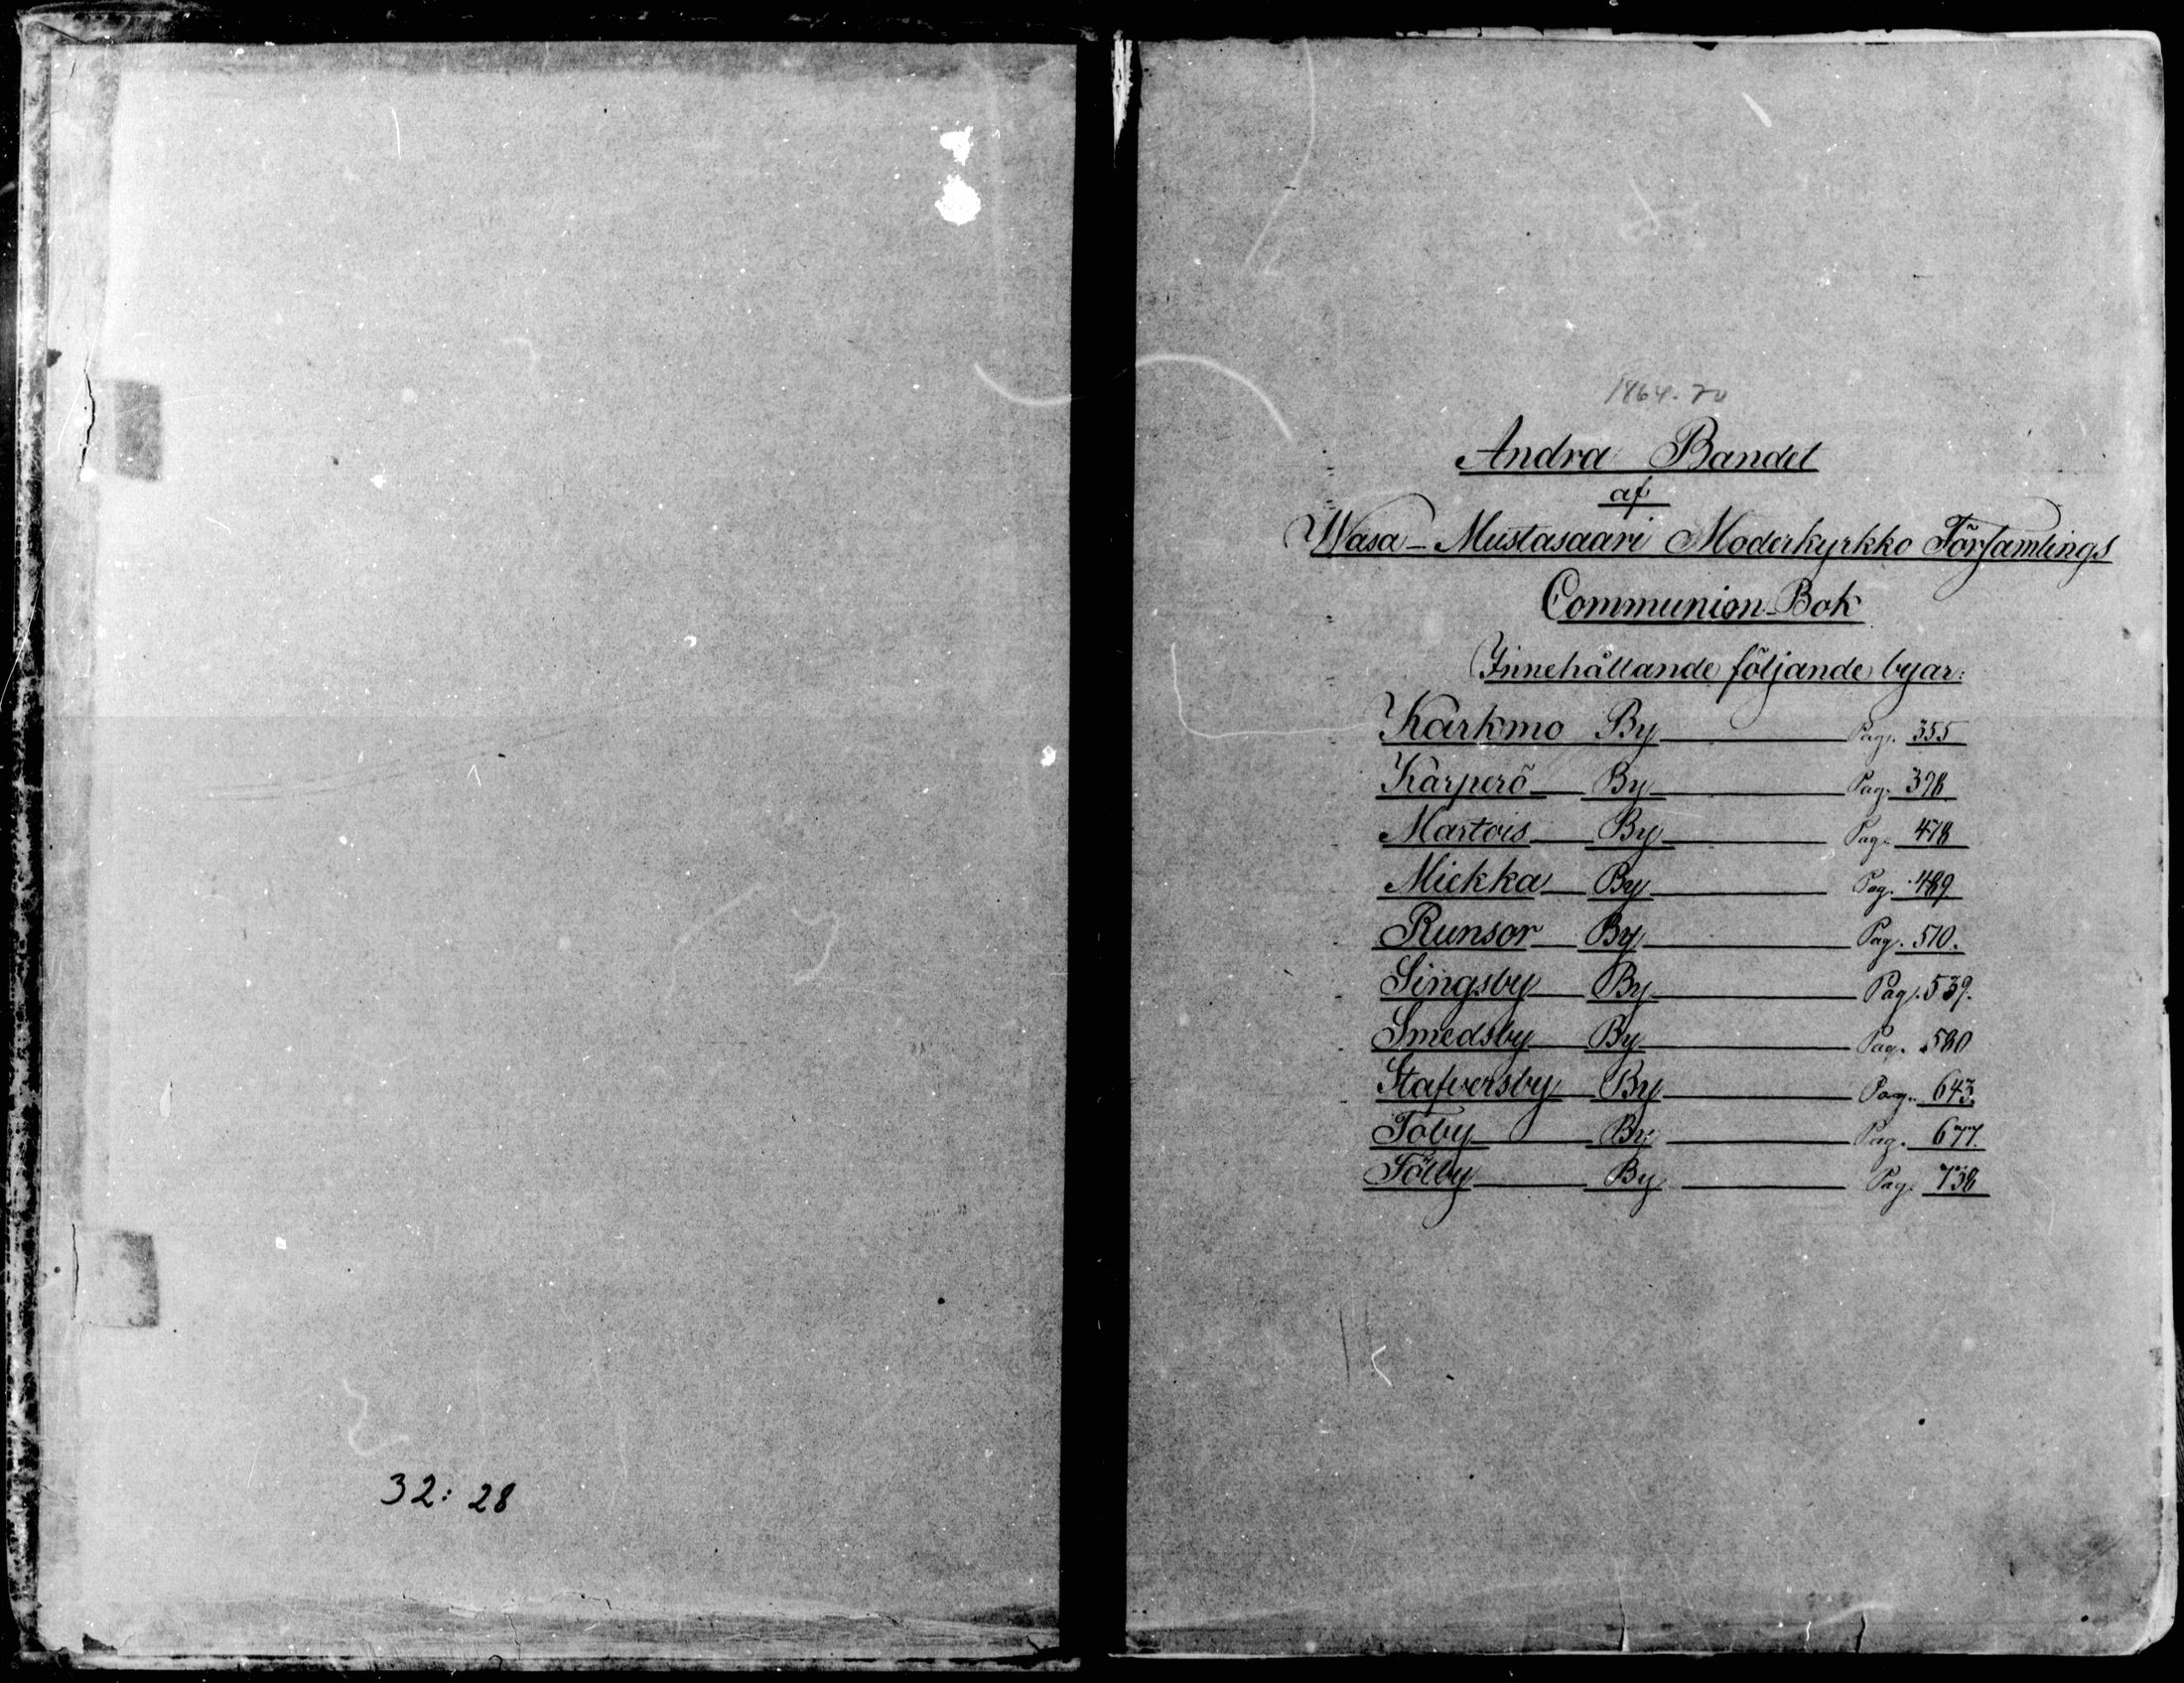 32: 28
1864-70
Andra Bandet
af
Wasa-Mustasaari Moderkyrkko Församlings
Communion-Bok
Innehållande följande byar:
Karkmo By Pag. 355
Karperö By Pag. 398
Martois By Pag. 478
Miekka By Pag. 489
Runsor By Pag. 510.
Singsby By Pag. 539.
Smedsby By Pag. 580
Stafversby By Pag. 643.
Toby By Pag. 677.
Tölby By Pag. 738